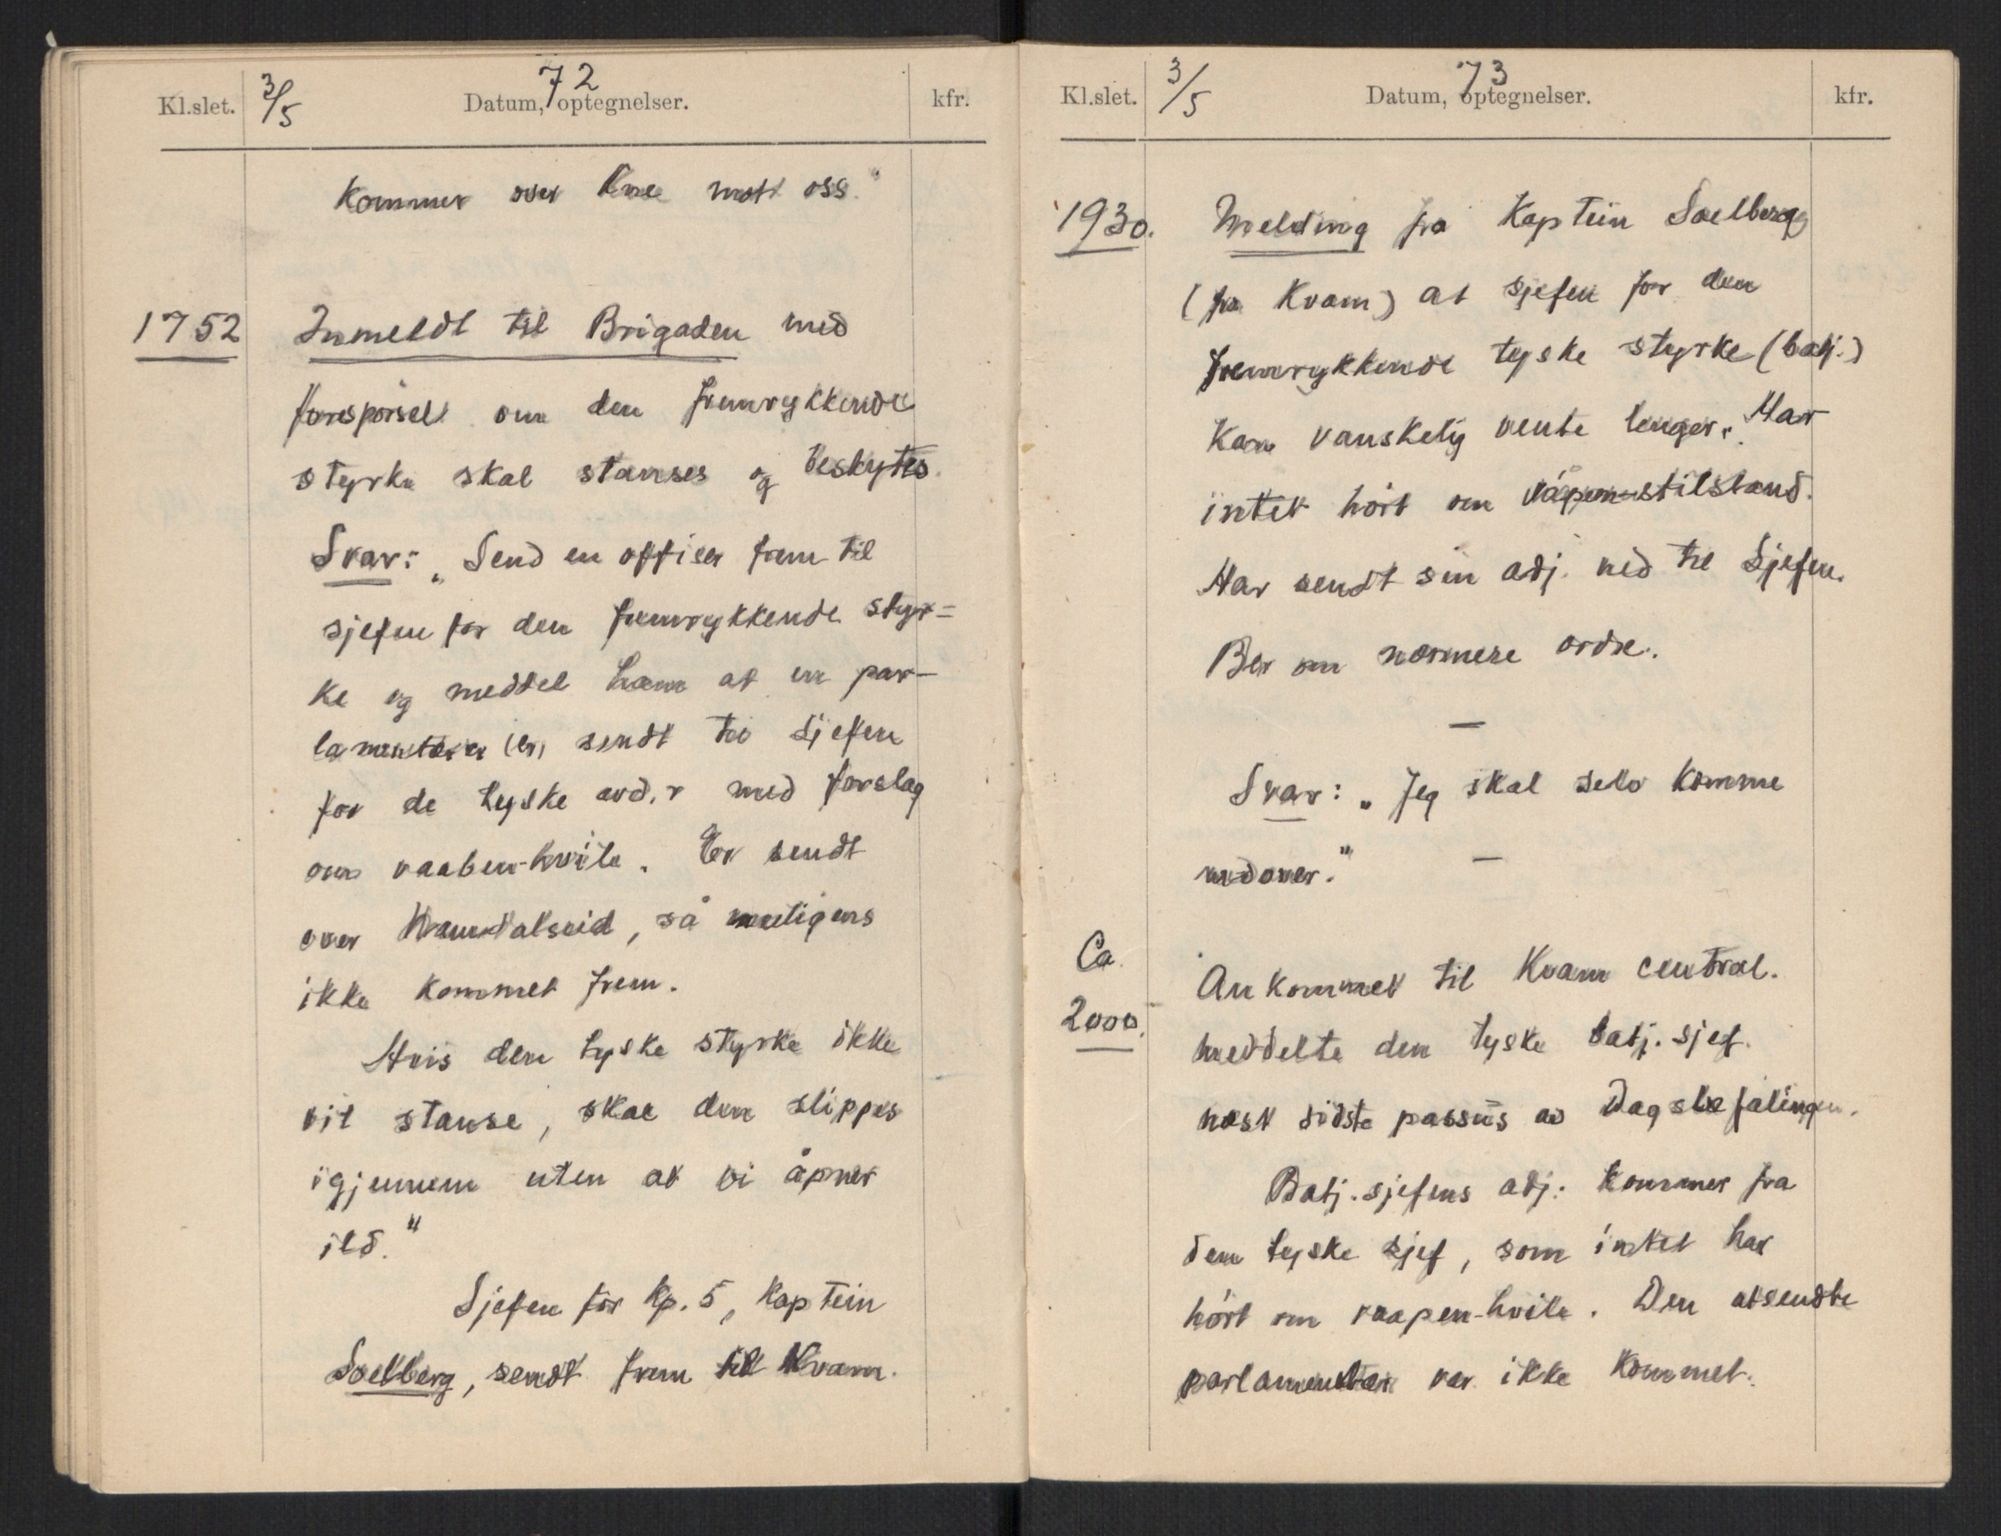 72
Kl.slet. 3/5 Datum, optegnelser. kfr.
kommer over Kne mot oss."
1752 Inmeldt til Brigaden med
forespörsel om den fremrykkende
styrke skal stanses og beskytes.
Svar: „Send en offiser frem til
sjefen for den fremrykkende styr=
ke og meddel ham at en par-
lamentær er sendt til sjefen
for de tyske avd.r med forslag
om vaaben-hvile. Er sendt
over Namdalseid, så muligens
ikke kommet frem.
Hvis den tyske styrke ikke
vil stanse, skal den slippes
igjennem uten at vi åpner
ild."
Sjefen for Kp. 5, Kaptein
Soelberg, sendt frem til Kvam.
73
Kl.slet. 3/5 Datum, optegnelser. kfr.
1930. Melding fra Kaptein Soelberg
(fra Kvam) at sjefen for den
fremrykkende tyske styrke (batj.)
kan vanskelig vente lenger. Har
intet hört om våpen-stilstand.
Har sendt sin adj. ned til Sjefen.
Ber om nærmere ordre.
—
Svar: „Jeg skal selv komme
nedover."
—
Ca. Ankommet til Kvam central.
2000. meddelte den tyske batj. sjef.
nest sidste passus av Dagsbefalingen.
Batj. sjefens adj. kommer fra
den tyske sjef, som intet har
hört om vaapen-hvile. Den utsendte
parlamentær var ikke kommet.